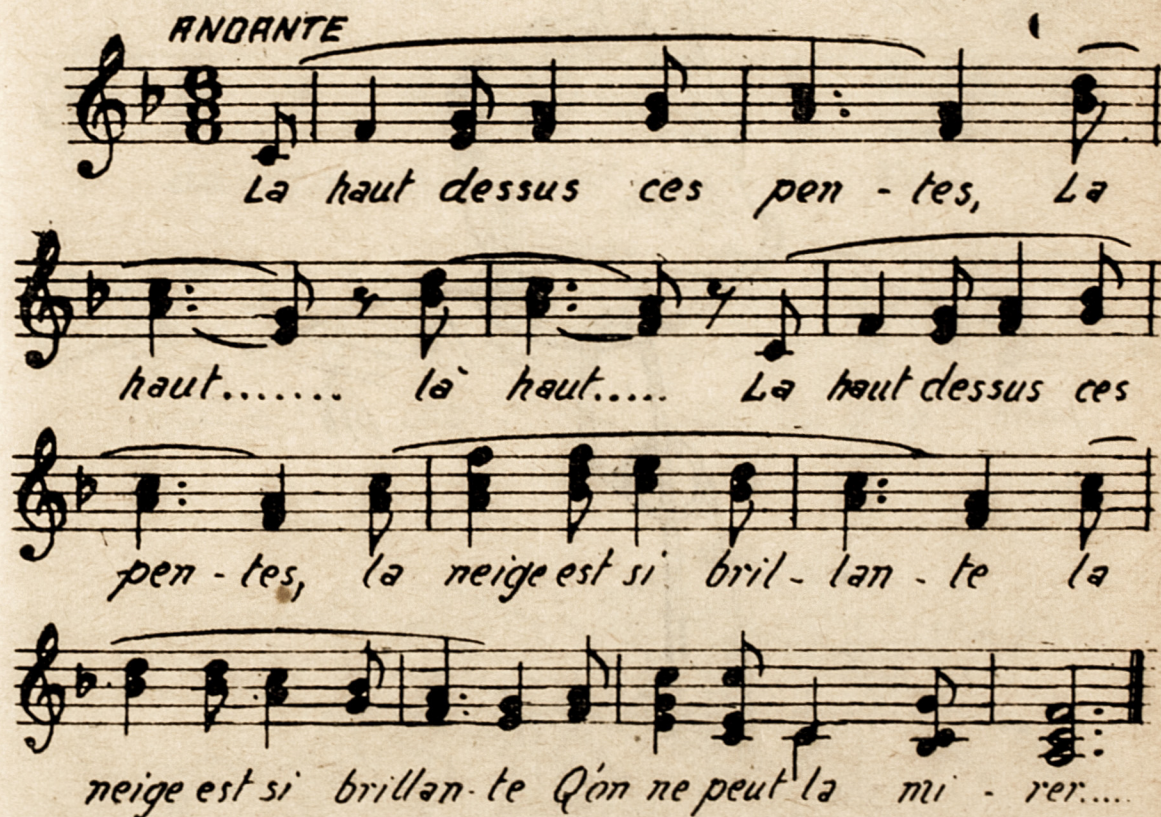 ANDANTE
La haut dessus ces pen - tes, La
haut....... là haut..... La haut dessus ces
pen - tes, la neige est si bril - lan - te la
neige est si brillan - te Q'on ne peut la mi - rer.....